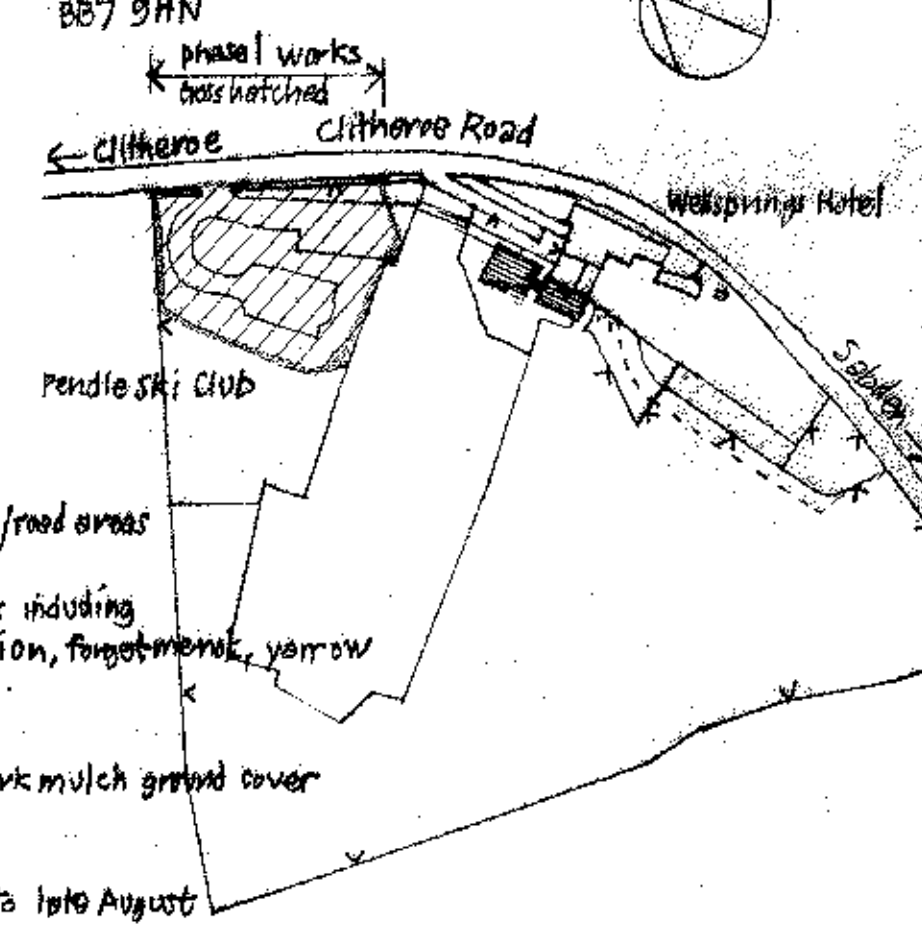 BB7 9HN
phase 1 works
cross hatched
Clitheroe
Clitheroe Road
Wellsprings Hotel
Sabden
Pendle Ski Club
/road areas
including
ion, forgetmenot, yarrow
rk mulch ground cover
late August